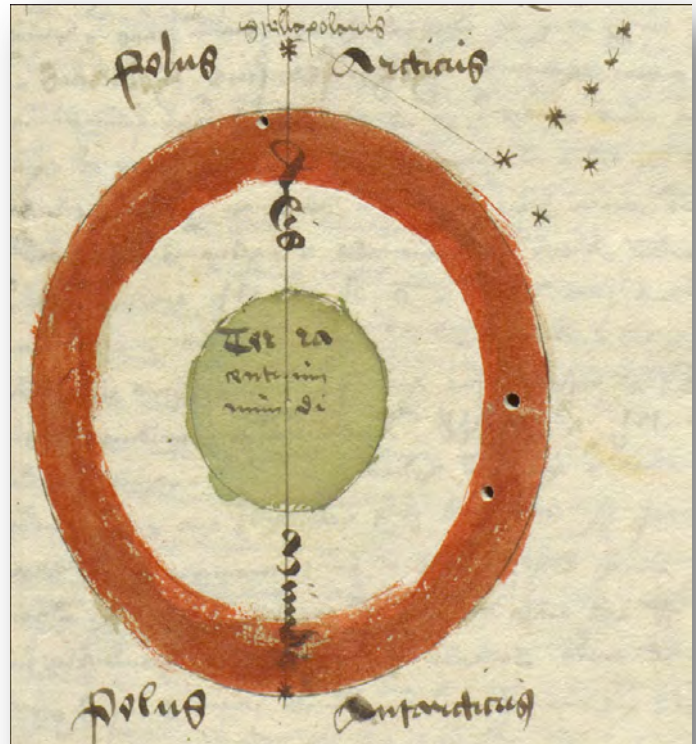 Stella polaris
Polus Arcticus
Axis
Ter ra
centrum
mun di
Polus Antarcticus